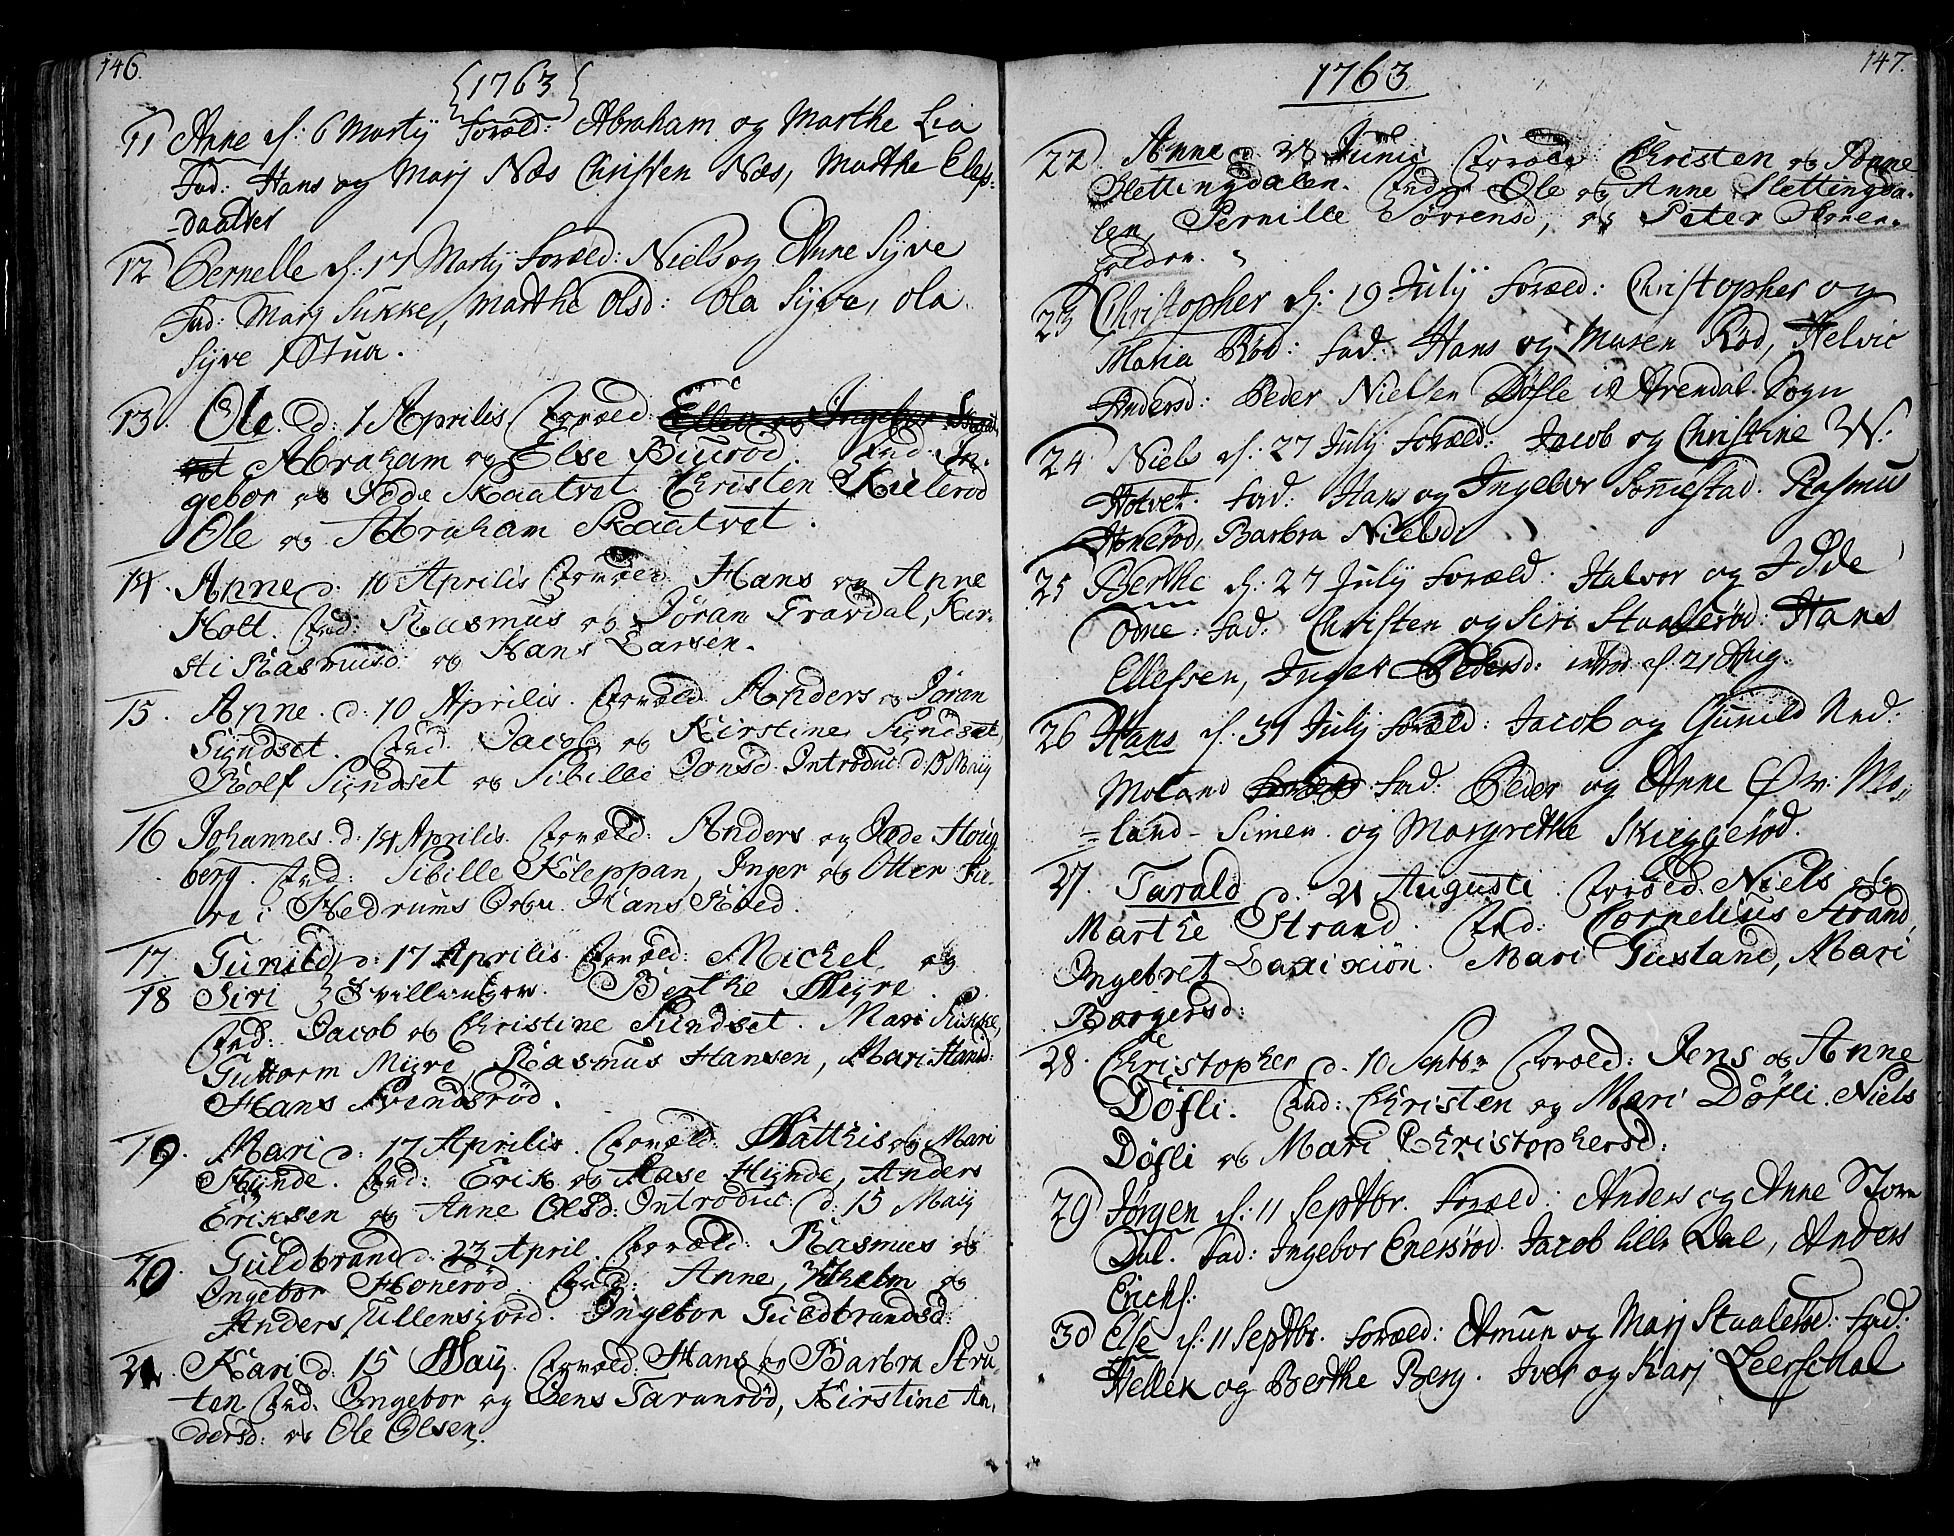 146.
{1763}
11 Anne d: 6 Martij Foræld: Abraham og Marthe Lia
Fad: Hans og Marj Næs Christen Næs, Marthe Elefs:
-daatter
12 Pernelle d: 17 Martij Foræld: Niels og Anne Syve
Fad: Marj Sukke, Marthe Olsd: Ola Syve, Ola
Syve Stua.
13. Ole. d: 1 Aprilis Foræld: Ellev og Ingebor
Abraham og Else Buurød. Fad: In-
gebor og Iøde Skaatvet. Christen Kielerød
Ole og Abraham Skaatvet.
14. Anne d: 10 Aprilis Foræld: Hans og Anne
Holt. Fad: Rasmus og Jøran Travdal, Kir-
sti Rasmusd: og Hans Larsen.
15. Anne. d: 10 Aprilis. Foræld: Anders og Jøran
Syndset. Fad: Jacob og Kirstine Syndset,
Rolf Syndset og Sibille Jonsd. Introduc: d: 15 Maij
16 Johannes d: 14 Aprilis. Foræld: Anders og Iøde Houg-
berg. Fad: Sibille Kleppan, Inger og Otter Fu-
re i Hedrums Sogn. Hans Røed.
17. Gunild d: 17 Aprilis. Foræld: Michel og
18 Siri } Tvillinger. Berthe Myre.
Fad: Jacob og Christine Sundset. Mari Sukke,
Guttorm Myre, Rasmus Hansen, Mari Hansd:
Hans Svindsrød.
19. Mari d: 17 Aprilis. Foræld: Matthis og Mari
Hynde. Fad: Erik og Aase Hynde, Anders
Eriksen og Anne Olsd: Introduc: d: 15 Maij
20. Guldbrand d: 23 April. Foræld: Rasmus og
Ingebor Honerød. Fad: Anne, og
Anders Ullensiord. Ingebor Guldbrandsd:
21. Kari d: 15 Maij. Foræld: Hans og Barbra Stru-
ten Fad: Ingebor og Jens Taranrød, Kirstine An-
dersd: og Ole Olsen.
147.
1763
22. Anne d: Junij Foræld: Christen og Anne
Slettingdalen. Fad: Ole og Anne Slettingda-
len, Pernille Sørensd, og Peter
23 Christopher d: 19 Julij Foræld: Christopher og
Maria Rød: Fad: Hans og Maren Rød, Helvic
Andersd: Peder Nielsen Døfle i Arendal Sogn
24 Niels d: 27 Julij Foræld: Jacob og Christine W:
Holvet. Fad: Hans og Ingebor Sommestad. Rasmus
Honerød, Barbra Nielsd:
25 Berthe d: 27 Julij Foræld: Halvor og Idde
Odne. Fad: Christen og Siri Staalerød. Hans
Ellefsen, Inger Pedersd: introd d. 21 Aug:
26 Hans d. 31 Julij Foræld: Jacob og Gunild Ned:
Moland Foræld Fad: Peder og Anne Øv: Mo-
=land - Simen og Margrethe Skieggerød.
27. Tarald d. 21 Augusti Foræld: Niels og
Marthe Strand. Fad: Cornelius Strand,
Ingebret . Mari Gusland, Mari
Borgersd:
28. Christopher d. 10 Septbr Foræld: Jens og Anne
Døfli. Fad: Christen og Mari Døfli. Niels
Døfli og Mari Christophersd:
29 Jørgen d: 11 Septbr. Foræld: Anders og Anne Store
Dal. Fad: Ingebor Enersrød. Jacob lille Dal, Anders
Erichs:
30 Else d: 11 Septbr. Foræld: Amun og Marj Staalerød. Fad:
Hellek og Berthe Berg. Iver og Karj Leerschal